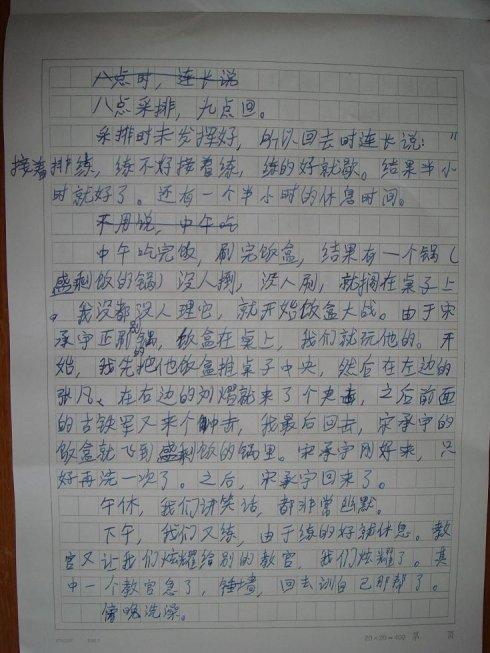 八点时，连长说
八点采排，九点回。
采排时未发挥好，所以回去时连长说："
接着排练，练不好接着练，练的好就歇。结果半小
时就好了。还有一个半小时的休息时间。
不用说，中午吃
中午吃完饭，刷完饭盒，结果有一个锅（
盛剩饭的锅）没人捆，没人刷，就搁在桌子上
。我没都没人理它，就开始饭盒大战。由于宋
承宇正刷别的锅，饭盒在桌上，我们就玩他的。开
始，我先把他饭盒推桌子中央，然后在左边的
张凡、在右边的刘熠就来了个夹击，之后前面
的古铁军又来个冲击，我最后回去，宋承宇的
饭盒就飞到盛剩饭的锅里。宋承宇刚好来，只
好再洗一次了。之后，宋承宇回来了。
午休，我们讲笑话，都非常幽默。
下午，我们又练，由于练的好就休息。教
官又让我们炫耀给别的教官，我们炫耀了。其
中一个教官急了，锤墙，回去训自己那帮了。
傍晚洗澡。
20×20=400 第 页